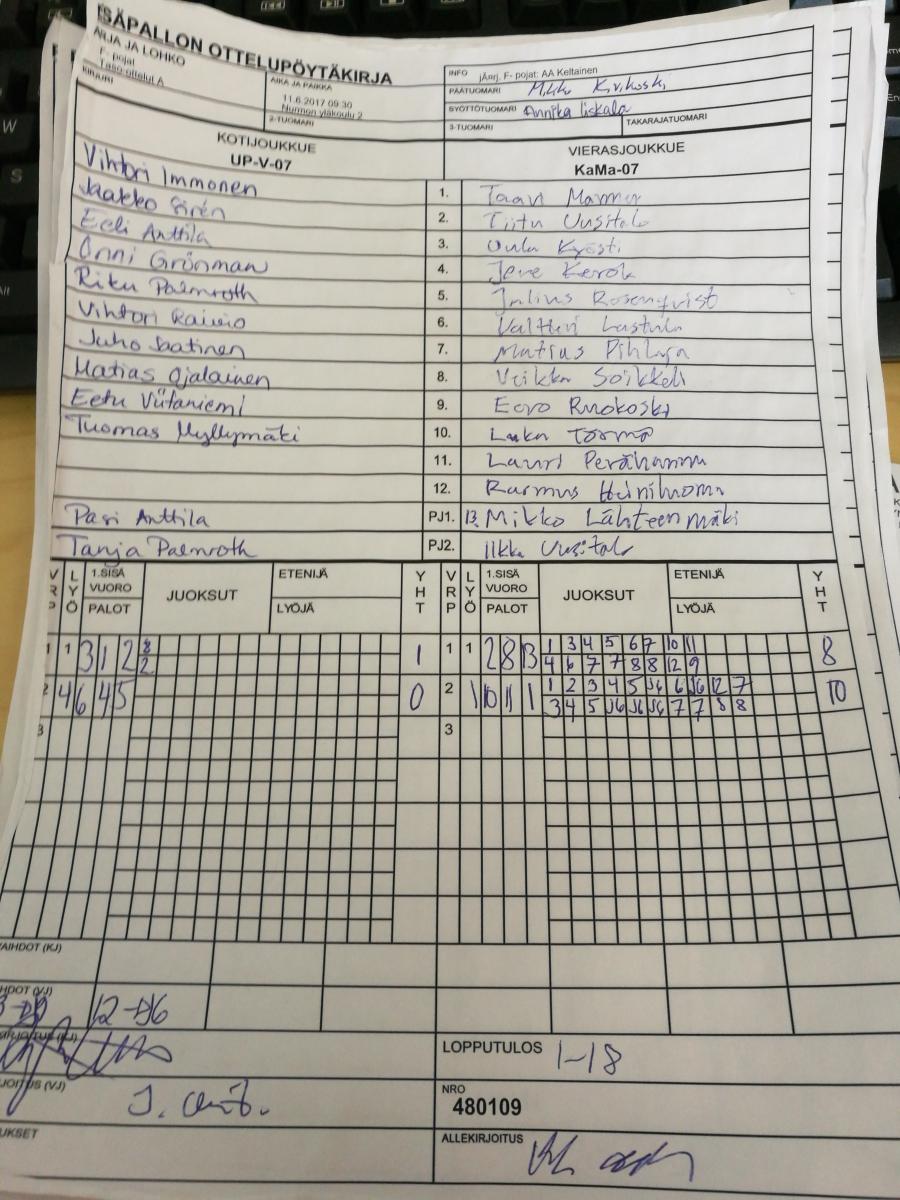 SÄPALLON OTTELUPÖYTÄKIRJA
ARJA JA LOHKO
F- pojat
Taso ottelut A
KIRJURI
AIKA JA PAIKKA
11.6.2017 09:30
Nurmon yläkoulu 2
2-TUOMARI
INFO jÄnrj. F- pojat: AA Keltainen
PÄÄTUOMARI
SYÖTTÖTUOMARI Annika Liskala
3-TUOMARI TAKARAJATUOMARI
KOTIJOUKKUE VIERASJOUKKUE
UP-V-07 KaMa-07
Vihtori Immonen 1. Taavi
Jaakko Sirén 2. Tiitu Uusitalo
Eeli Anttila 3. Oula Kyösti
Onni Grönman 4.
Riku Palmroth 5. Julius Rosenqvist
Vihtori Raivio 6. Valtteri Lastula
Juho Saatinen 7. Matias Pihlaja
Matias Ojalainen 8. Veikka Soikkeli
Eetu Viitaniemi 9. Eero Ruokoski
Tuomas Myllymäki 10. Luka Törmä
11. Lauri Perähannu
12. Rasmus
Pasi Anttila PJ1. 13. Mikko Lähteenmäki
Tanja Palmroth PJ2. Ilkka Uusitalo
VRP LYÖ 1.SISÄ VUORO PALOT JUOKSUT ETENIJÄ LYÖJÄ YHT VRP LYÖ 1.SISÄ VUORO PALOT JUOKSUT ETENIJÄ LYÖJÄ YHT
1 1 3 1 2 8 1 1 1 2 8 13 1 3 4 5 6 7 10 11 8
2 4 6 7 7 8 8 12 9
2 4 6 4 5 0 2 1 10 11 1 1 2 3 4 5 J6 6 J6 12 7 10
3 4 5 J6 J6 J6 7 7 8 8
3 3
AIHDOT (KJ)
HDOT (VJ)
12 → J6
KIRJOITUS (KJ)
LOPPUTULOS 1-18
JOITUS (VJ)
NRO
480109
UKSET
ALLEKIRJOITUS